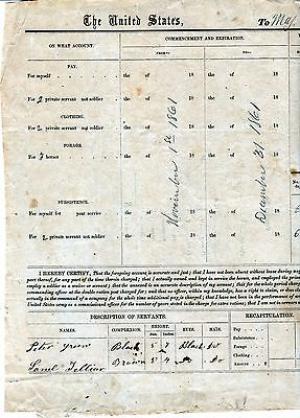 The United States, To Maj
ON WHAT ACCOUNT. COMMENCEMENT AND EXPIRATION.
PAY.
For myself the of 18 the of 18
For 2 private servant not soldier the of 18 the of 18
CLOTHING.
For 2 private servant not soldier the of 18 the of 18
FORAGE.
For horses the of 18 the of 18
November 1st 1861
December 31 1861
SUBSISTENCE.
For myself for years service the of 18 the of 18
For 2 private servant not soldier the of 18 the of 18
I HEREBY CERTIFY, That the foregoing account is accurate and just; that I have not been absent without leave during
part thereof, for any part of the time therein charged; that I actually owned and kept in service the horses, and employed the private
employ a soldier as a waiter or servant; that the annexed is an accurate description of my servant; that for the whole period
commanding officer at the double ration post charged for; and that no officer, within my knowledge, has a right to claim, or does
actually in the command of a company for the whole time additional pay is charged; that I have not been in the performance of
United States army as a commissioned officer for the number of years stated in the charge for extra rations; that I am not in arrears
DESCRIPTION OF SERVANTS. RECAPITULATION.
NAMES. COMPLEXION. HEIGHT. EYES. HAIR.
Feet. Inches.
Peter Green Black 5 Black Do
Brown 5 4
Pay,
Subsistence,
Forage,
Clothing,
Amount $